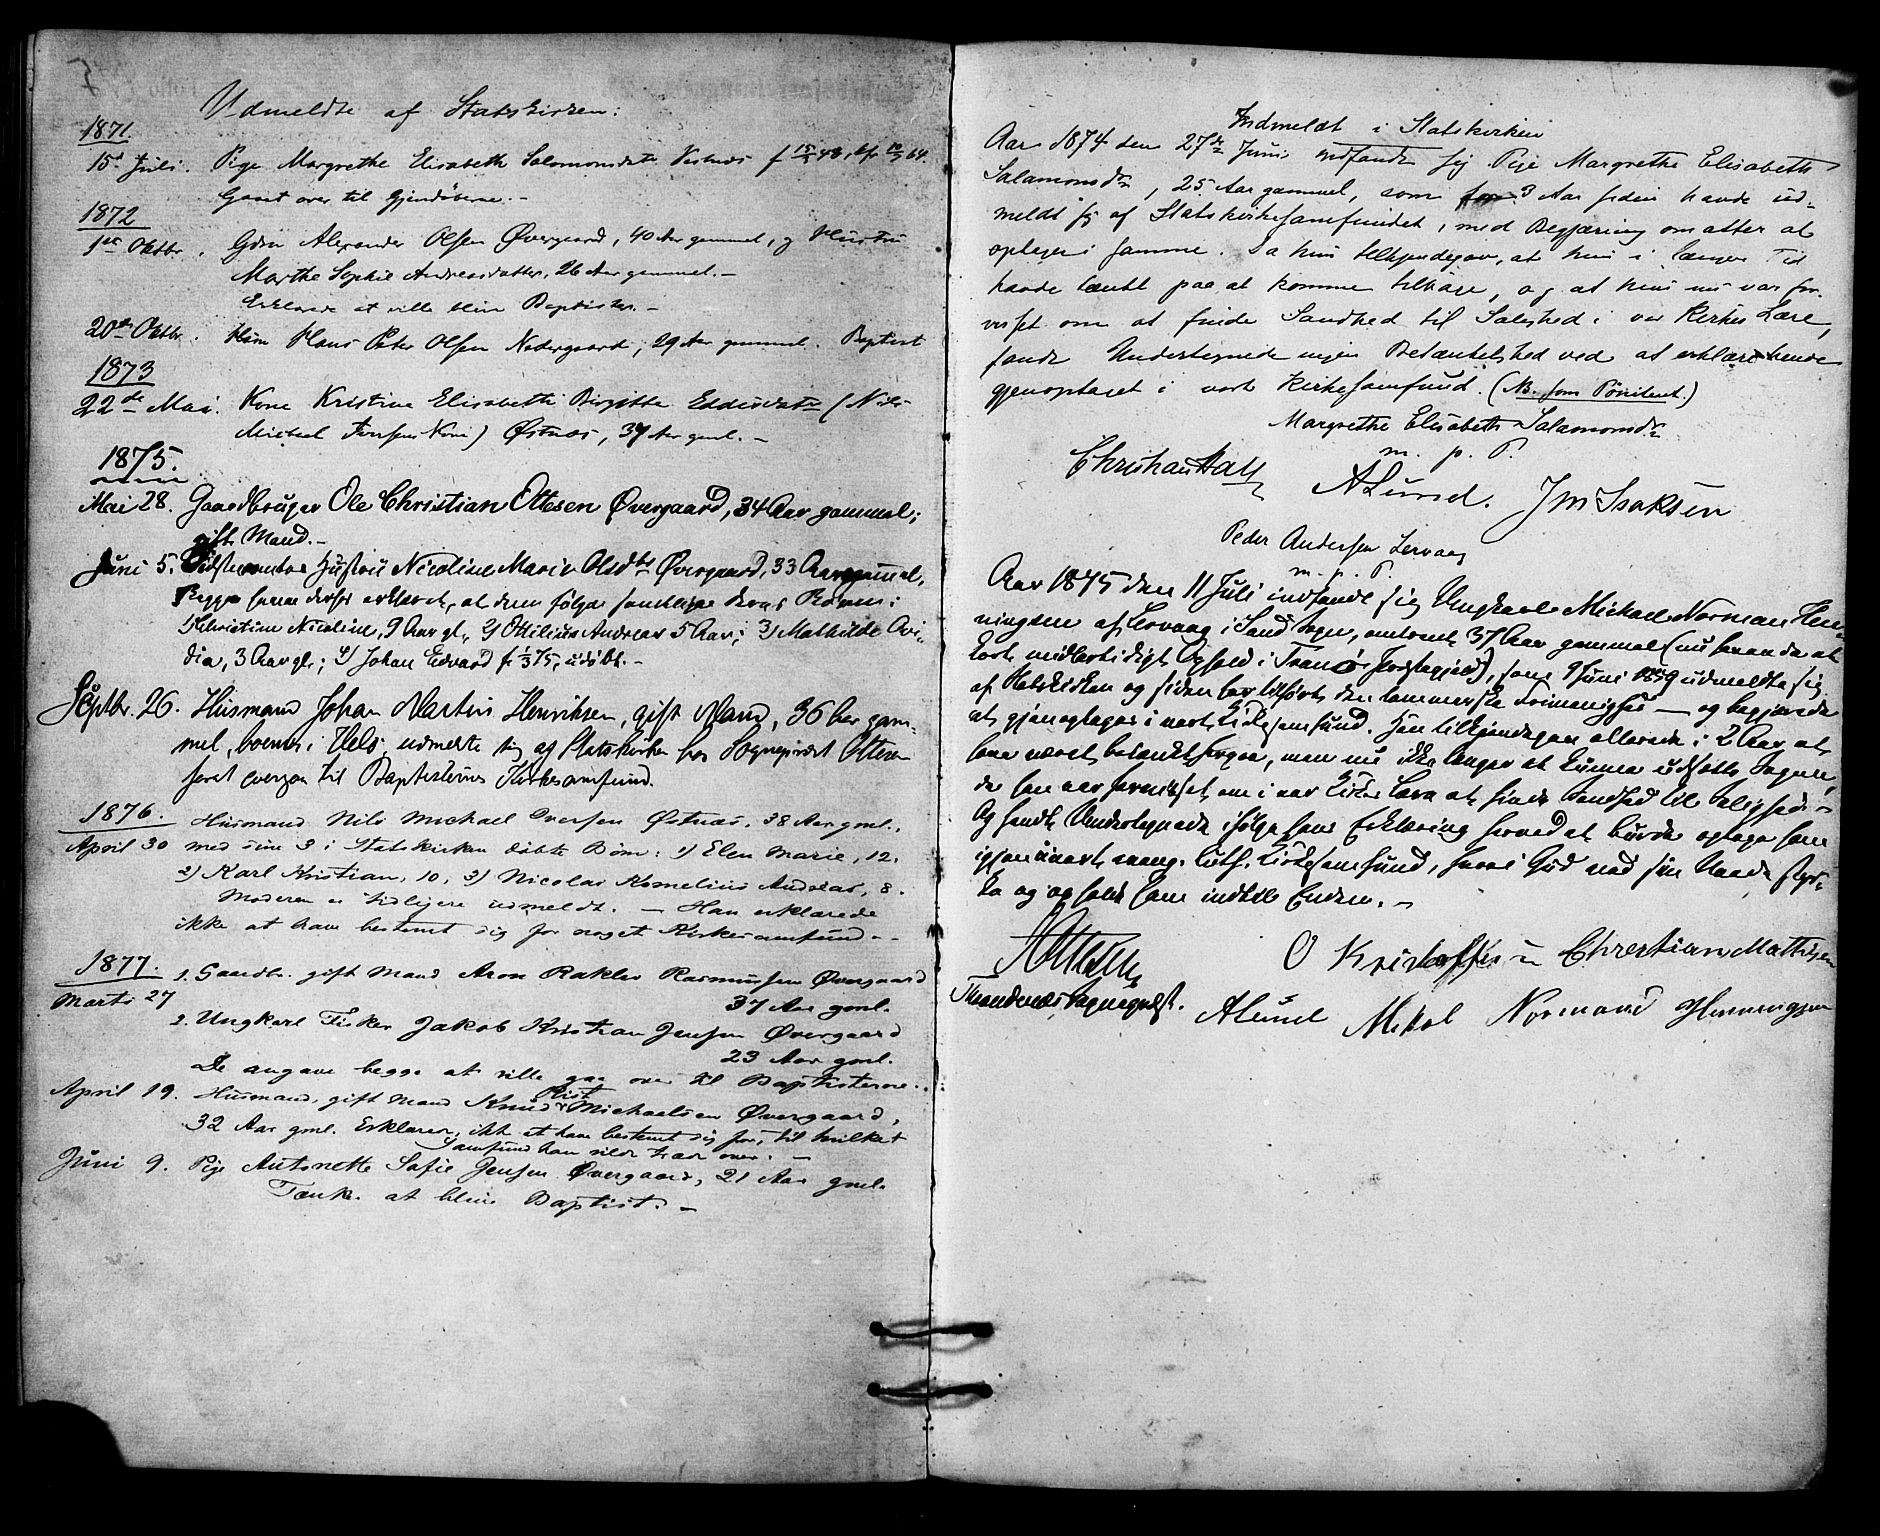 Udmeldte af Statskirken:
1871.
15de Juli. Pige Margrethe Elisabeth Salomonsdatr Vestnes f 15/5 48, kf 10/7 64.
Gaaet over til Gjendøberne. -
1872
1ste Oktbr. Gdm Alexander Olsen Øvergaard, 40 Aar gammel, og Hustru
Marthe Sophie Andreasdatter, 26 Aar gammel. -
Erklærede at ville blive Baptister. -
20de Oktbr. Hsm Hans Peter Olsen Nedergaard, 29 Aar gammel. Baptist
1873
22de Mai. Kone Kristine Elisabeth Birgitte Eddisdatr (Nils
Michael Iversens Kone) Østnes, 37 Aar gml. -
1875.
Mai 28. Gaardbruger Ole Christian Ottesen Øvergaard, 34 Aar gammel;
gift Mand. -
Juni 5. Sidstnævntes Hustru Nicoline Marie Olsdtr Øvergaard, 33 Aar gammel,
Begge have derhos erklæret, at dem følge samtlige deres Børn:
1) Christine Nicoline, 9 Aar gl., 2) Ottilius Andreas 5 Aar; 3) Mathilde Ovi-
dia, 3 Aar gl.; 4) Johan Edvard f. 1/3 75, udøbt. -
Septbr. 26. Husmand Johan Martin Henriksen, gift Mand, 36 Aar gam-
mel, boende i Vels udmeldte sig af Statskirken hos Sognepræst Ottesen
for at overgaa til Baptisternes Kirkesamfund.
1876. Husmand Nils Michael Iversen Østnæs, 38 Aar gml.,
April 30 med sine 3 i Statskirken døbte Børn: 1) Elen Marie, 12.
2) Karl Kristian, 10, 3) Nicolai Kornelius Andreas, 8.
Moderen er tidligere udmeldt. - Han erklærede
ikke at have bestemt sig for noget Kirkesamfund. -
1877. 1. Gaardbr. gift Mand Aron Rakler Rasmussen Øvergaard
Marts 27 37 Aar gml.
2. Ungkarl Fisker Jakob Kristian Jensen Øvergaard
23 Aar gml.
De angave begge at ville gaa over til Baptisterne.
April 19. Husmand, gift Mand Knud Rist Michaelsen Øvergaard,
32 Aar gml. Erklærer, ikke at have bestemt sig for, til hvilket
Samfund han vilde træde over. -
Juni 9. Pige Antonette Sofie Jensen Øvergaard, 21 Aar gml.
Tænk. at blive Baptist. -
Indmeldt i Statskirken
Aar 1874 den 27de Juni indfandt sig Pige Margrethe Elisabeth
Salamonsdr, 25 Aar gammel, som for 3 Aar siden havde ud-
meldt sig af Statskirkesamfundet, med Begjæring om atter at
optages i samme. Da hun tilkjendegav, at hun i længere Tid
havde tænkt paa at komme tilbage, og at hun nu var for-
visset om at finde Sandhed til Salighed i vor Kirkes Lære,
fandt Undertegnede ingen Betænkelighed ved at erklære hende
gjenoptaget i vort Kirkesamfund. (NB. som Pønitent.)
Margrethe Elisabeth Salamonsdr
m. p. P.
Christian Hall A Lund. J M Isaksen
Peder Andersen Lervaag
m. p. P.
Aar 1875 den 11 Juli indfandt sig Ungkarl Mickael Norman Hen-
ningsen af Lervaag i Sand Sogn, omtrent 37 Aar gammel (nu havende et
kort midlertidigt Ophold i Tranø Præstegjeld), som 9 Juni 1859 udmeldte sig
af Statskirken og siden har tilhørt den lammerske Frimenighed - og begjærede
at gjenoptages i vort Kirkesamfund. Han tilkjendegav allerede i 2 Aar at
have været betænkt herpaa, men nu ikke længer at kunne udsætte Sagen,
da han var forvisset om i vor Kirkes Lære at finde Sandhed til Salighed. -
Og fandt Undertegnede ifølge hans Erklæring herved at burde optage ham
igjen i vort evang. luth. Kirkesamfund, hvori Gud ved sin Naade styr-
ke og opholde ham indtil Enden. -
Ottesen O Kristoffersen Christian Mathisen
Throndenæs Sognepræst. A Lund Mikal Normand Henningsen